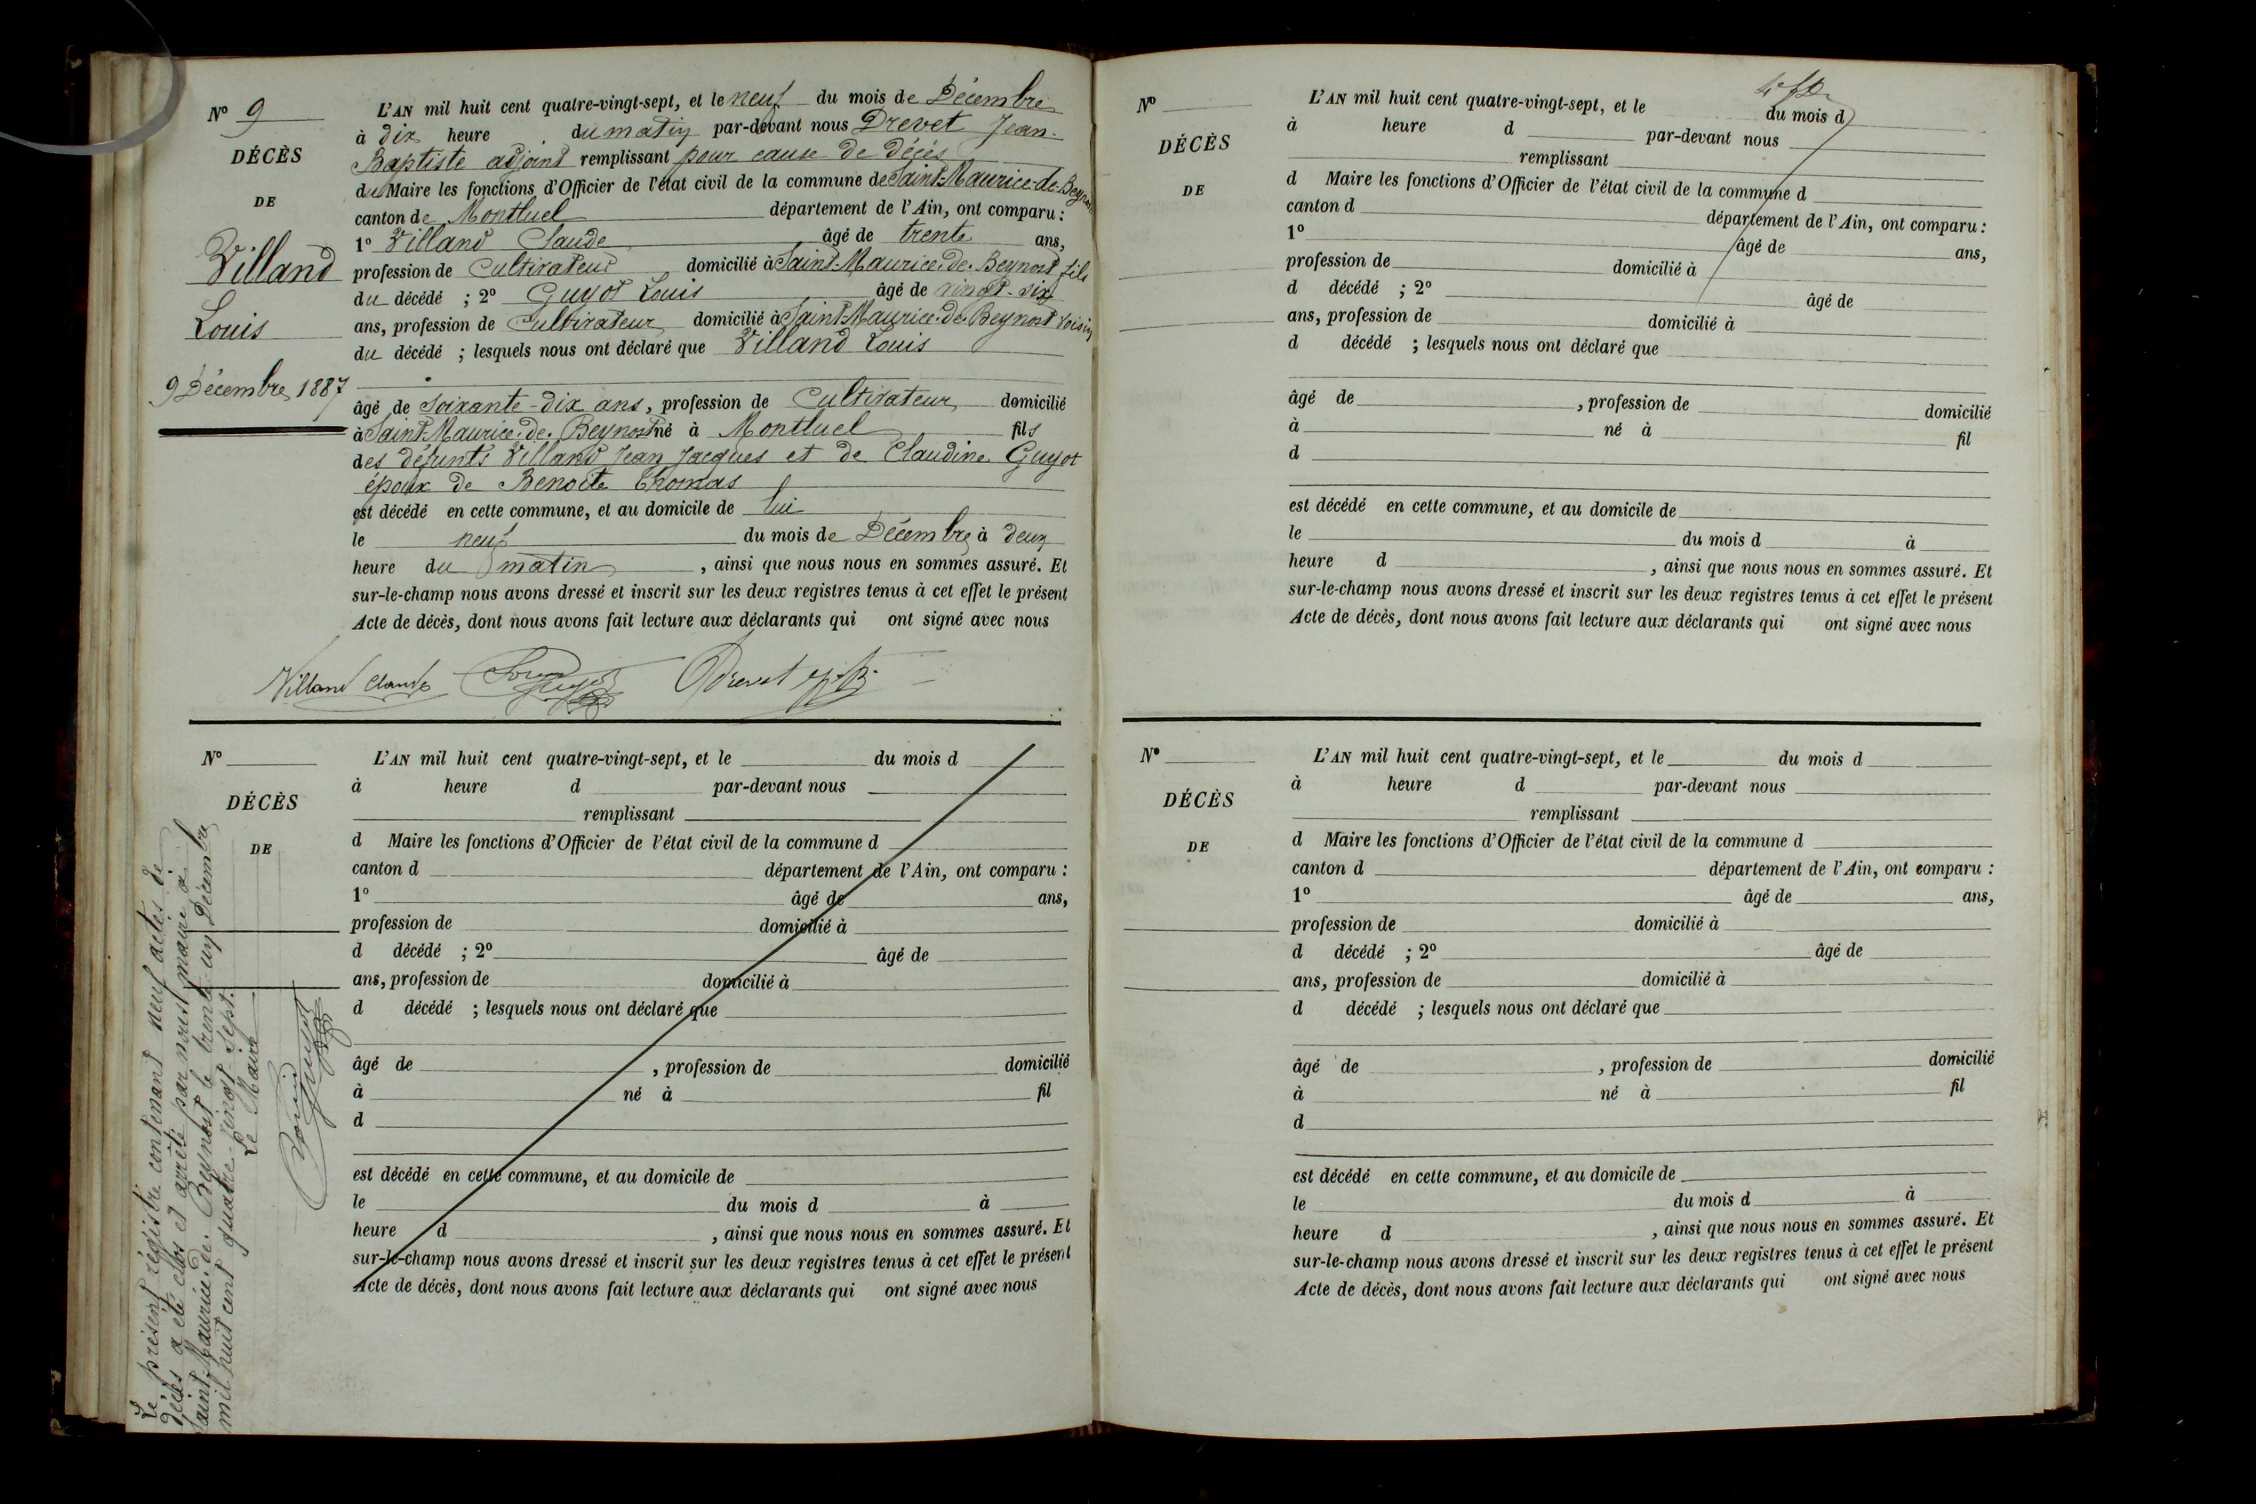 N° 9
DÉCÈS
DE
Villand
Louis
9 Décembre 1887
L'AN mil huit cent quatre-vingt-sept, et le neuf du mois de Décembre
à dix heure du matin par-devant nous Drevet Jean-
Baptiste adjoint remplissant pour cause de décès
du Maire les fonctions d'Officier de l'état civil de la commune de Saint-Maurice-de-Beynost
canton de Montluel département de l'Ain, ont comparu :
1° Villand Claude âgé de trente ans,
profession de Cultivateur domicilié à Saint-Maurice-de-Beynost fils
du décédé ; 2° Guyot Louis âgé de vingt-six
ans, profession de Cultivateur domicilié à Saint-Maurice-de-Beynost voisin
du décédé ; lesquels nous ont déclaré que Villand Louis
âgé de Soixante-dix ans, profession de Cultivateur domicilié
à Saint-Maurice-de-Beynost né à Montluel fils
des défunts Villand Jean Jacques et de Claudine Guyot
époux de Benoite Thomas
est décédé en cette commune, et au domicile de lui
le neuf du mois de Décembre à deux
heure du matin, ainsi que nous nous en sommes assuré. Et
sur-le-champ nous avons dressé et inscrit sur les deux registres tenus à cet effet le présent
Acte de décès, dont nous avons fait lecture aux déclarants qui ont signé avec nous
Villand Claude Louis Guyot Drevet J. B.
N°
DÉCÈS
DE
L'AN mil huit cent quatre-vingt-sept, et le du mois d
à heure d par-devant nous
remplissant
d Maire les fonctions d'Officier de l'état civil de la commune d
canton d département de l'Ain, ont comparu :
1° âgé de ans,
profession de domicilié à
d décédé ; 2° âgé de
ans, profession de domicilié à
d décédé ; lesquels nous ont déclaré que
âgé de , profession de domicilié
à né à fil
d
est décédé en cette commune, et au domicile de
le du mois d à
heure d , ainsi que nous nous en sommes assuré. Et
sur-le-champ nous avons dressé et inscrit sur les deux registres tenus à cet effet le présent
Acte de décès, dont nous avons fait lecture aux déclarants qui ont signé avec nous
Le présent régistre contenant neuf actes de
décès a été clos et arrêté par nous maire à
Saint-Maurice-de-Beynost le trente-un Décembre
mil huit cent quatre-vingt-sept.
Le Maire
N°
DÉCÈS
DE
L'AN mil huit cent quatre-vingt-sept, et le du mois d
à heure d par-devant nous
remplissant
d Maire les fonctions d'Officier de l'état civil de la commune d
canton d département de l'Ain, ont comparu :
1° âgé de ans,
profession de domicilié à
d décédé ; 2° âgé de
ans, profession de domicilié à
d décédé ; lesquels nous ont déclaré que
âgé de , profession de domicilié
à né à fil
d
est décédé en cette commune, et au domicile de
le du mois d à
heure d , ainsi que nous nous en sommes assuré. Et
sur-le-champ nous avons dressé et inscrit sur les deux registres tenus à cet effet le présent
Acte de décès, dont nous avons fait lecture aux déclarants qui ont signé avec nous
N°
DÉCÈS
DE
L'AN mil huit cent quatre-vingt-sept, et le du mois d
à heure d par-devant nous
remplissant
d Maire les fonctions d'Officier de l'état civil de la commune d
canton d département de l'Ain, ont comparu :
1° âgé de ans,
profession de domicilié à
d décédé ; 2° âgé de
ans, profession de domicilié à
d décédé ; lesquels nous ont déclaré que
âgé de , profession de domicilié
à né à fil
d
est décédé en cette commune, et au domicile de
le du mois d à
heure d , ainsi que nous nous en sommes assuré. Et
sur-le-champ nous avons dressé et inscrit sur les deux registres tenus à cet effet le présent
Acte de décès, dont nous avons fait lecture aux déclarants qui ont signé avec nous